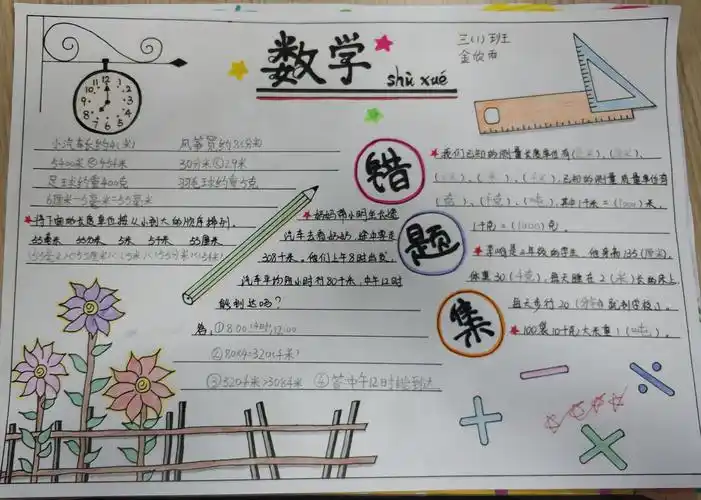 数学
shù xué
三(1)班
金欣雨
错题集
小汽车长约4(米)
风筝宽约8(分米)
5400米
30分米
29米
足球约重400克
羽毛球约重5克
6厘米-5毫米=55毫米
★将下面的长度单位按从小到大的顺序排列。
55毫米 5米 5千米 55厘米
★妈妈带小明坐长途
汽车去看奶奶,途中要走
308千米。他们上午8时出发,
汽车平均每小时行80千米,中午12时
能到达吗?
答,①8:00 12:00
②80×4=320(千米)
③320千米>308千米 ④答:中午12时能到达
★我们已知的测量长度单位有
已知的测量质量单位有
(克)、(千克)、(吨),其中1千米=(1000)米,
1千克=(1000)克。
★李明是2年级的学生,他身高135(厘米),
体重30(千克),每天睡在2(米)长的床上,
每天步行20(分钟)就到学校。
★100袋10千克大米重1(吨)。